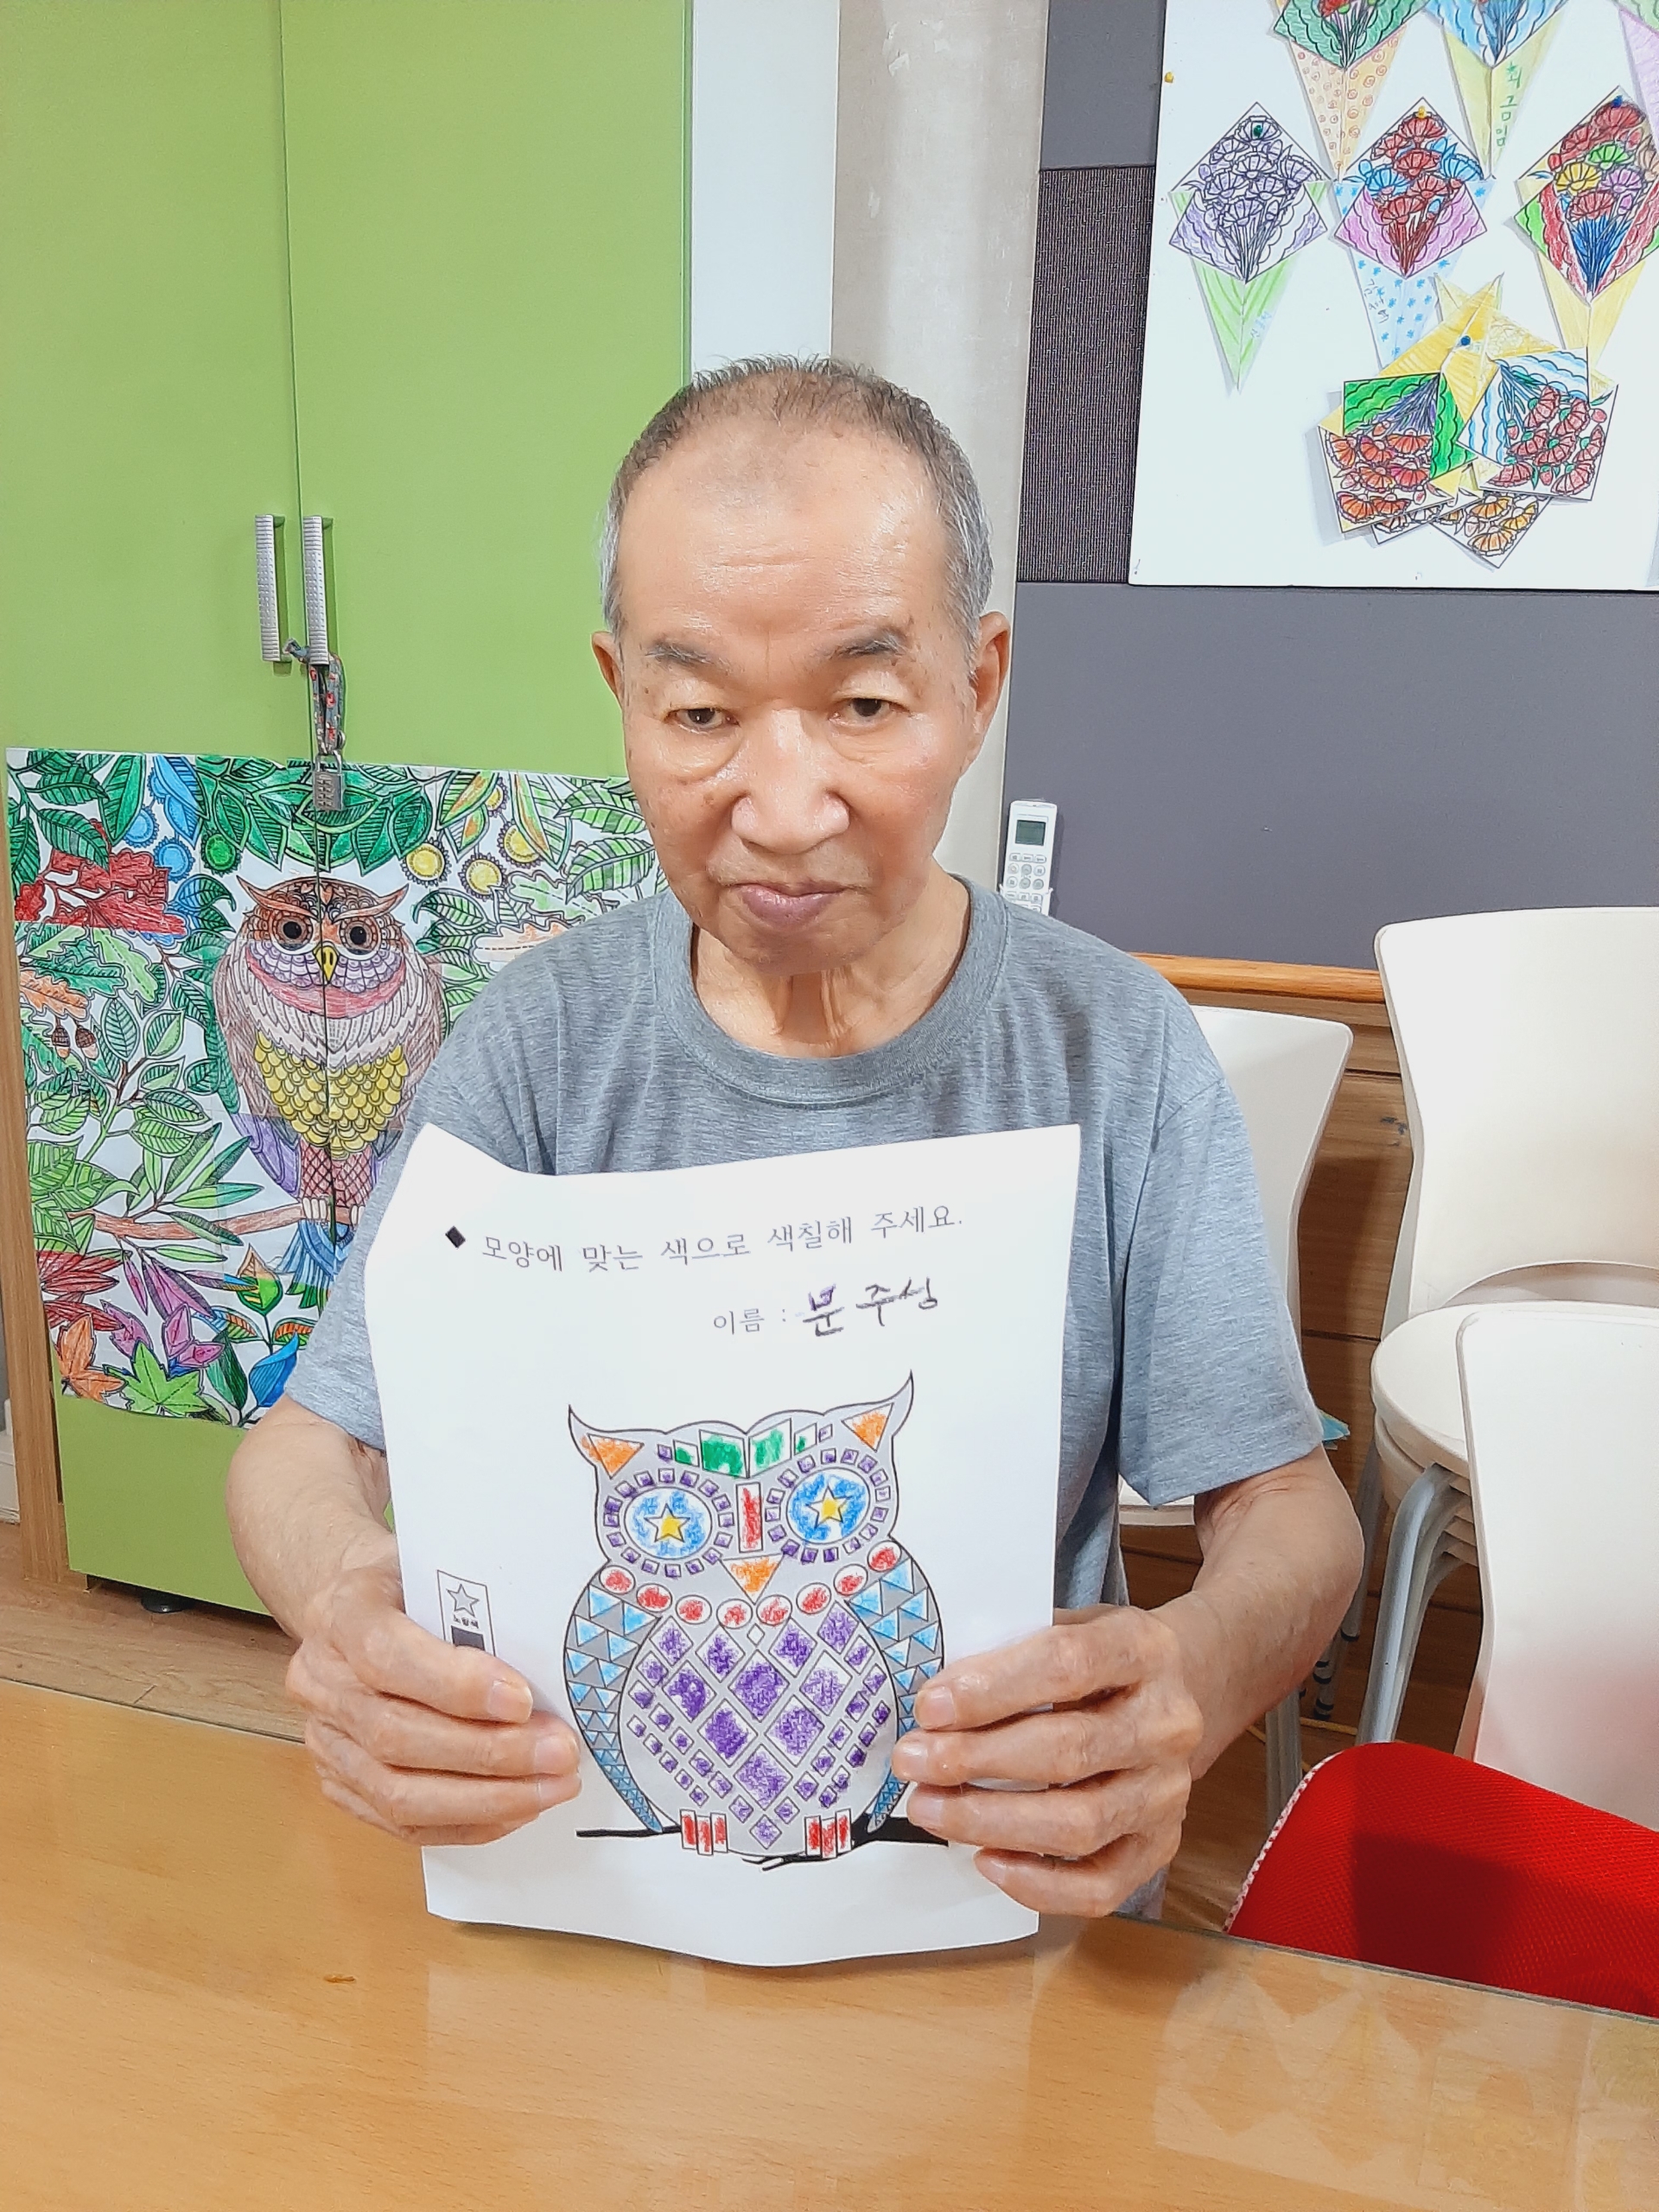 최금임
◆ 모양에 맞는 색으로 색칠해 주세요.
이름 : 문주성
노랑색